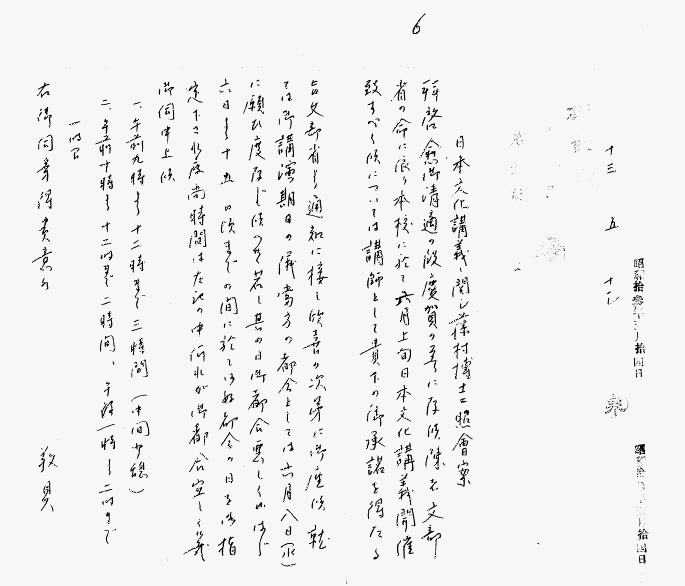 6
十三 五 十
昭和拾參年五月拾四日
昭和拾參年五月拾四日
日本文化講義ニ関シ藤村博士ニ照會案
拜啓 愈御清適の段慶賀の至に存候陳者文部
省の命に依り本校に於て六月上旬日本文化講義開催
致すべく候については講師として貴下の御承諾を得たる
旨文部省より通知に接し欣喜の次第に御座候 就
ては御講演期日の儀當方の都合としては六月八日(水)
に願ひ度存じ候へ共若し其の日御都合悪しく候はば
六日より十五日頃までの間に於て御都合の日を御指
定下され度尚時間は左記の中何れが御都合宜しく候哉
御伺申上候
一、午前九時より十二時まで 三時間 (中間少憩)
二、午前十時より十二時まで二時間、午後一時より二時まで
一時間
右御伺旁得貴意候
敬具